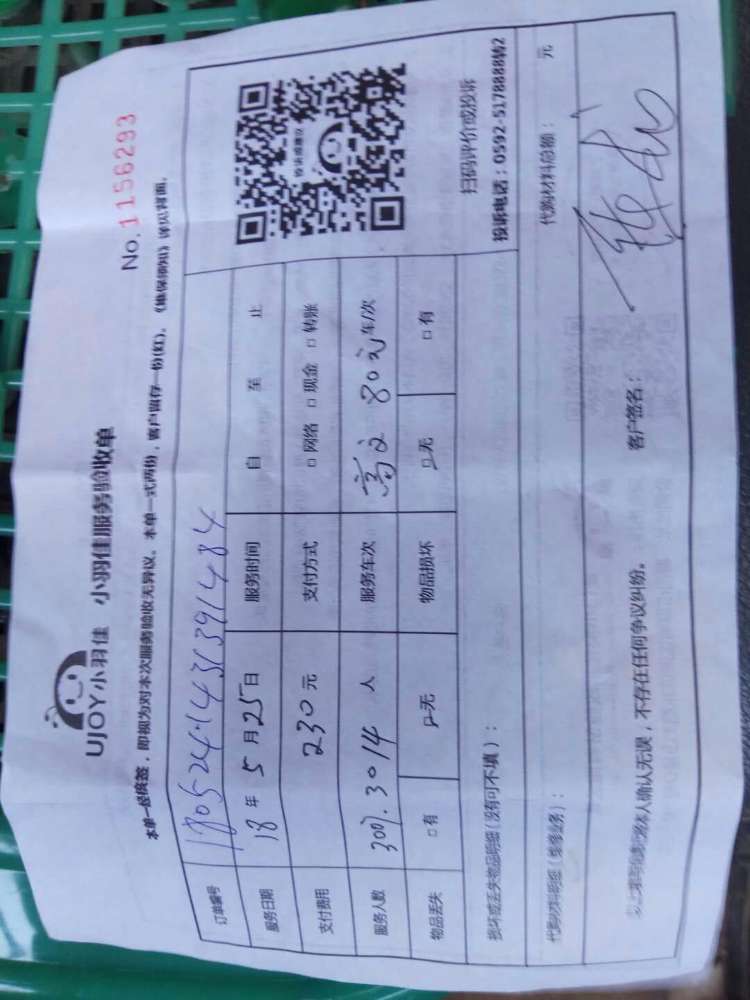 UJOY小羽佳 小羽佳服务验收单
No. 1156293
本单一经核签，即视为对本次服务验收无异议。本单一式两份，客户留存一份(红)。《维保须知》详见背面。
订单编号 1805241431391484
服务日期 18 年 5 月 25 日 服务时间 自 至 止
支付费用 230 元 支付方式 □ 网络 □ 现金 □ 转账
服务人数 3007. 3014 人 服务车次 80元 车/次
物品丢失 □ 有 □ 无 物品损坏 □ 无 □ 有
投诉或建议
扫码评价或投诉
投诉电话：0592-5178888转2
损坏或丢失物品明细（没有可不填）：
代购材料明细（维修业务）： 代购材料总额： 元
以上填写信息均经本人确认无误，不存在任何争议纠纷。 客户签名：